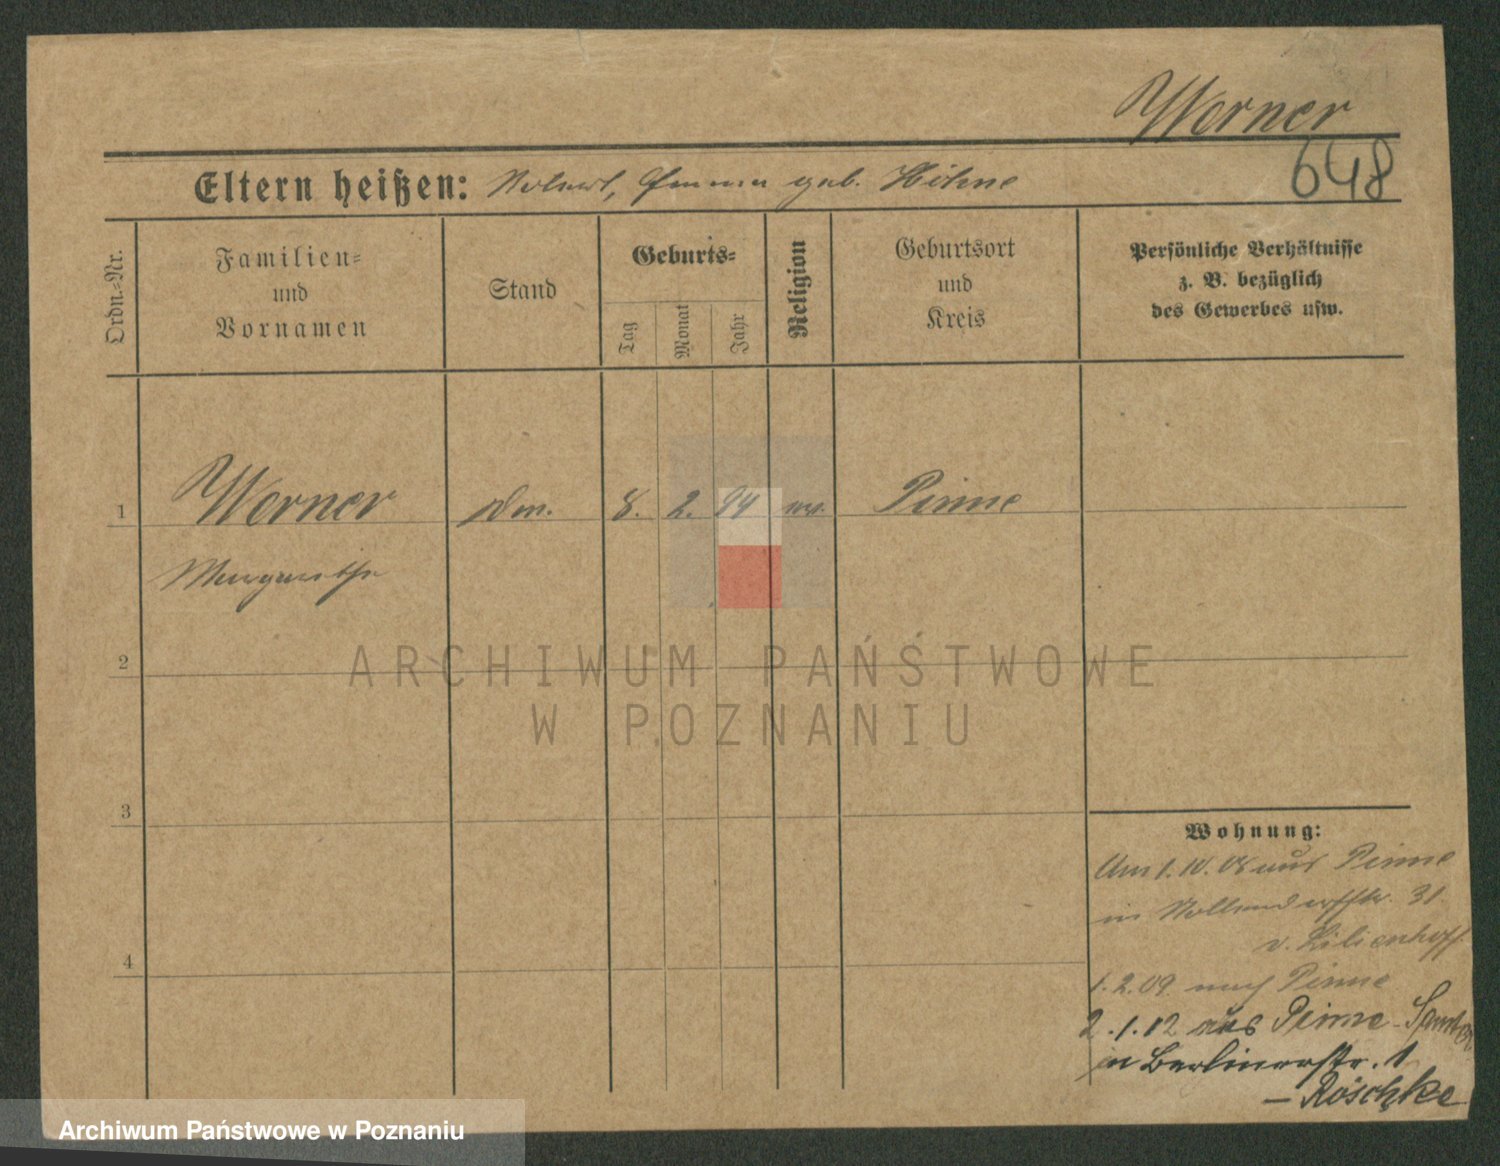 Werner
648
Eltern heißen: Robert, Emma geb. Höhne
Ordn.=Nr.
Familien=
und
Vornamen
Stand
Geburts=
Tag
Monat
Jahr
Religion
Geburtsort
und
Kreis
Persönliche Verhältnisse
z. B. bezüglich
des Gewerbes usw.
1
Werner
8. 2. 94
Pinne
Margarethe
2
3
4
ARCHIWUM PAŃSTWOWE
W POZNANIU
Wohnung:
Am 1.10.08 aus Pinne
in Nollendorffstr. 31.
v. Lilienhoff
1.2.09. nach Pinne
2.1.12 aus Pinne - Samter
in Berlinerstr. 1
– Röschke
Archiwum Państwowe w Poznaniu